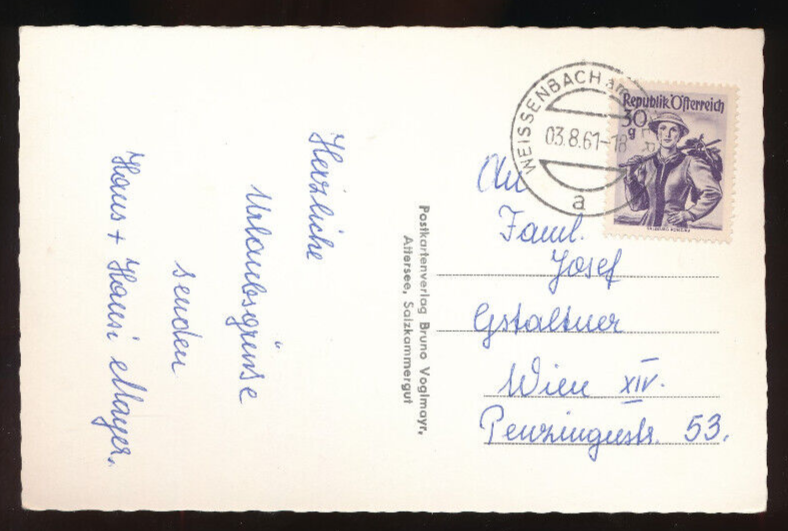 Herzliche
Urlaubsgrüsse
senden
Hans + Hansi Mayer.
Postkartenverlag Bruno Voglmayr,
Attersee, Salzkammergut
WEISSENBACH am
03.8.61-18
a
Republik Österreich
30
g
An
Faml.
Josef
Gstaltner
Wien XIV.
Penzingerstr. 53.